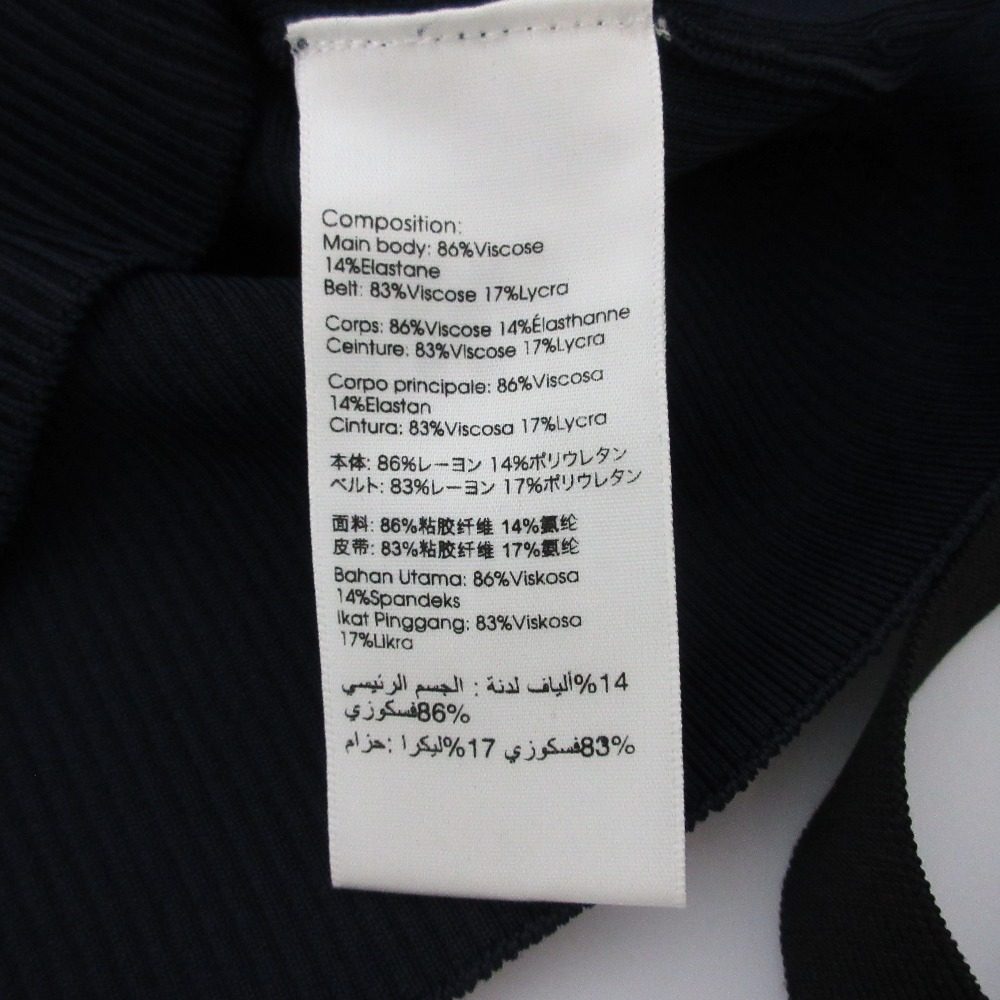 Composition:
Main body: 86%Viscose
14%Elastane
Belt: 83%Viscose 17%Lycra
Corps: 86%Viscose 14%Élasthanne
Ceinture: 83%Viscose 17%Lycra
Corpo principale: 86%Viscosa
14%Elastan
Cintura: 83%Viscosa 17%Lycra
本体: 86%レーヨン 14%ポリウレタン
ベルト: 83%レーヨン 17%ポリウレタン
面料: 86%粘胶纤维 14%氨纶
皮带: 83%粘胶纤维 17%氨纶
Bahan Utama: 86%Viskosa
14%Spandeks
Ikat Pinggang: 83%Viskosa
17%Likra
14%ألياف لدنة : الجسم الرئيسي
86%فسكوزي
83%فسكوزي 17%ليكرا :حزام